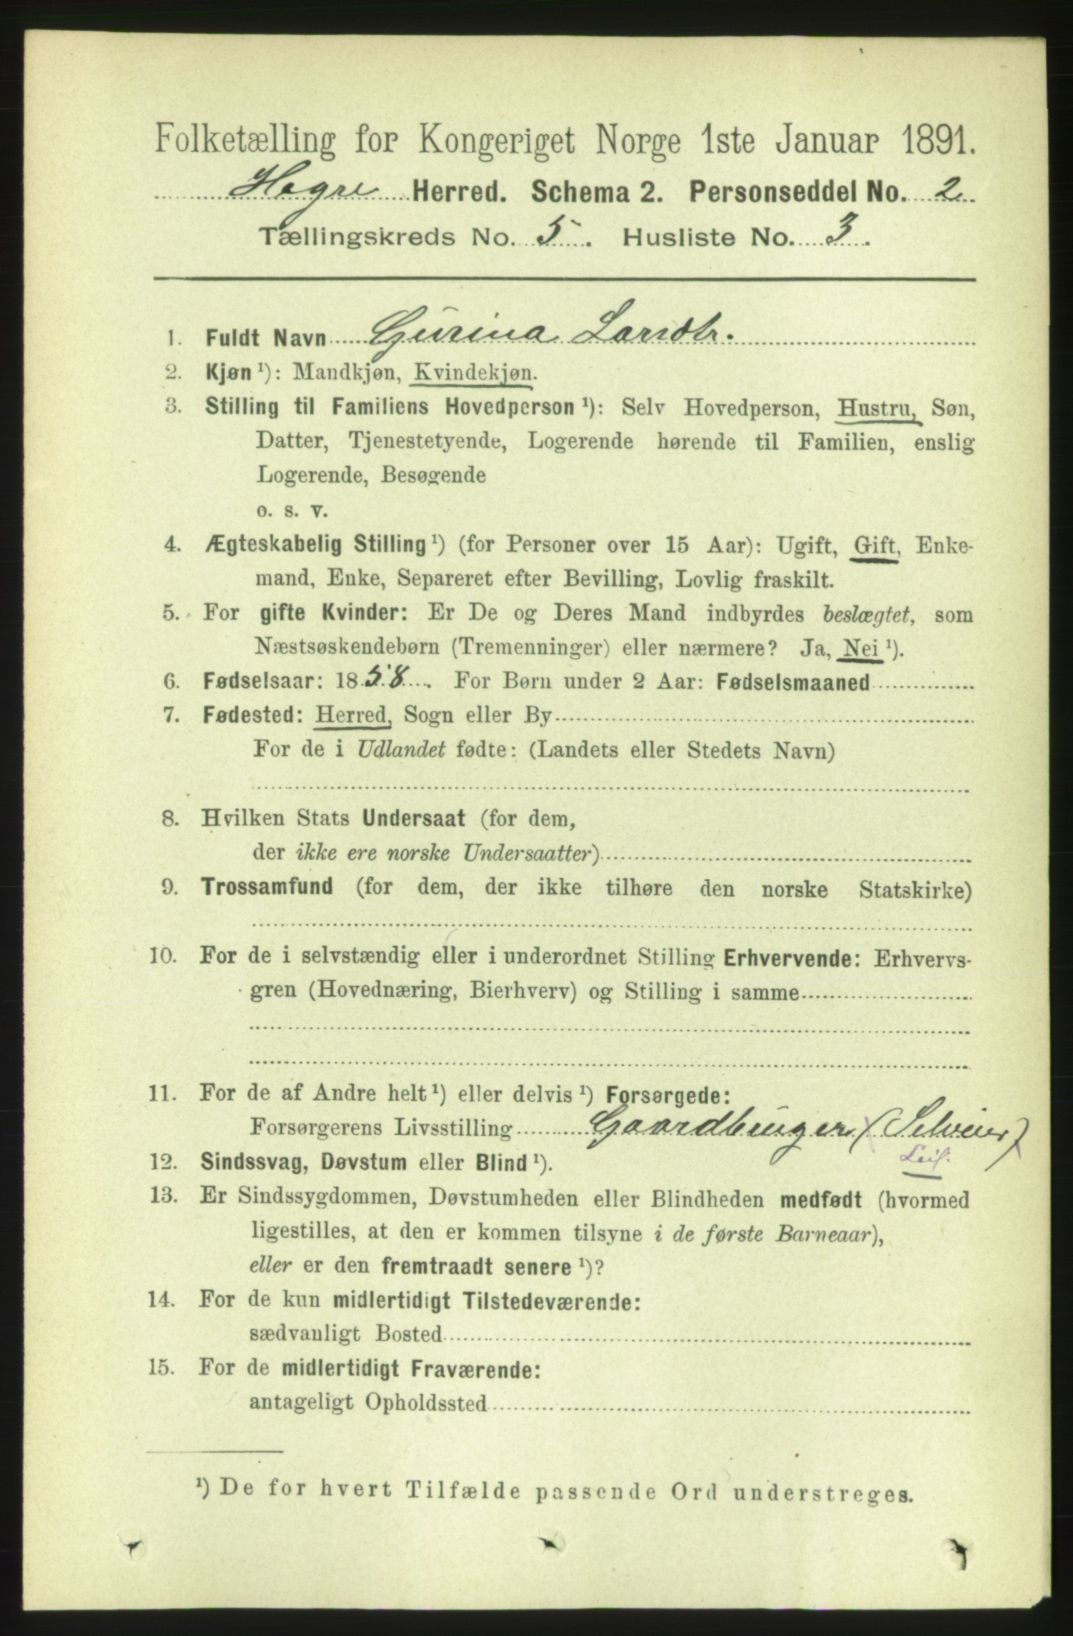 Folketælling for Kongeriget Norge 1ste Januar 1891.
Hegre Herred. Schema 2. Personseddel No. 2
Tællingskreds No. 5. Husliste No. 3.
1. Fuldt Navn Gurina Larsdtr.
2. Kjøn ¹): Mandkjøn, Kvindekjøn.
3. Stilling til Familiens Hovedperson ¹): Selv Hovedperson, Hustru, Søn,
Datter, Tjenestetyende, Logerende hørende til Familien, enslig
Logerende, Besøgende
o. s. v.
4. Ægteskabelig Stilling ¹) (for Personer over 15 Aar): Ugift, Gift, Enke-
mand, Enke, Separeret efter Bevilling, Lovlig fraskilt.
5. For gifte Kvinder: Er De og Deres Mand indbyrdes beslægtet, som
Næstsøskendebørn (Tremenninger) eller nærmere? Ja, Nei ¹).
6. Fødselsaar: 1858. For Børn under 2 Aar: Fødselsmaaned
7. Fødested: Herred, Sogn eller By
For de i Udlandet fødte: (Landets eller Stedets Navn)
8. Hvilken Stats Undersaat (for dem,
der ikke ere norske Undersaatter)
9. Trossamfund (for dem, der ikke tilhøre den norske Statskirke)
10. For de i selvstændig eller i underordnet Stilling Erhvervende: Erhvervs-
gren (Hovednæring, Bierhverv) og Stilling i samme
11. For de af Andre helt ¹) eller delvis ¹) Forsørgede:
Forsørgerens Livsstilling Gaardbruger (Selveier)
Leil.
12. Sindssvag, Døvstum eller Blind ¹).
13. Er Sindssygdommen, Døvstumheden eller Blindheden medfødt (hvormed
ligestilles, at den er kommen tilsyne i de første Barneaar),
eller er den fremtraadt senere ¹)?
14. For de kun midlertidigt Tilstedeværende:
sædvanligt Bosted
15. For de midlertidigt Fraværende:
antageligt Opholdssted
¹) De for hvert Tilfælde passende Ord understreges.